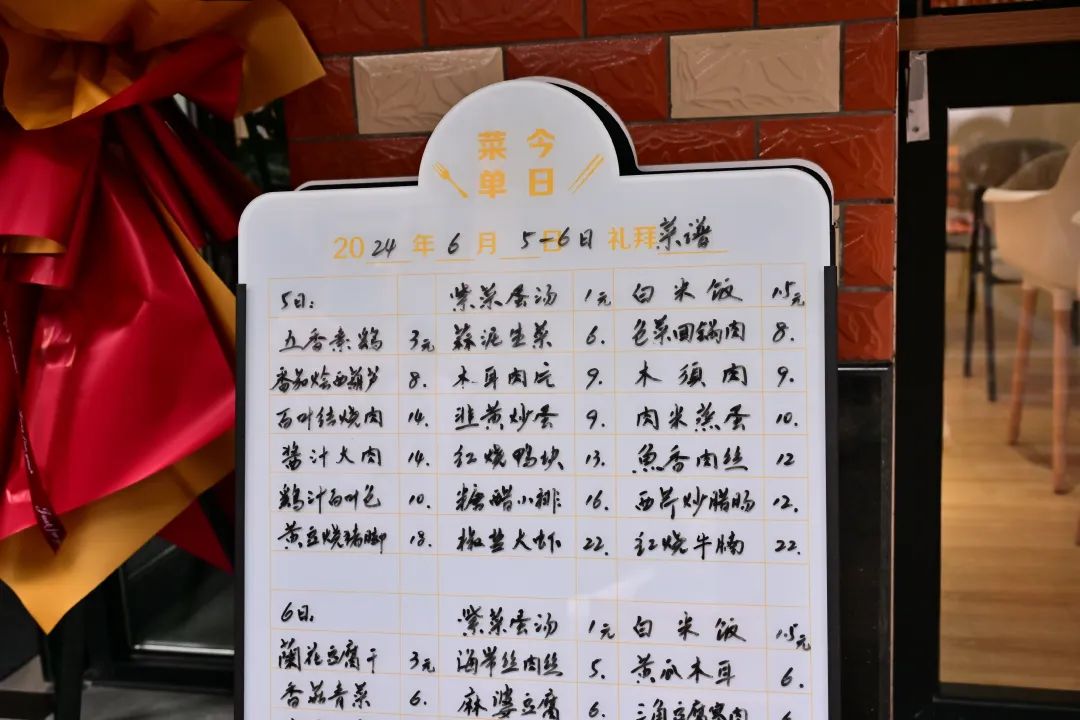 今日
菜单
2024年6月5-6日 礼拜菜谱
5日: 紫菜蛋汤 1元 白米饭 1.5元
五香素鸡 3元 蒜泥生菜 6. 包菜回锅肉 8.
番茄烩西葫芦 8. 木耳肉片 9. 木須肉 9.
百叶结烧肉 14. 韭黄炒蛋 9. 肉米蒸蛋 10.
酱汁大肉 14. 红烧鸭块 13. 魚香肉丝 12
鸡汁百叶包 10. 糖醋小排 16. 西芹炒腊肠 12.
黄豆烧猪脚 18. 椒盐大虾 22. 红烧牛腩 22.
6日. 紫菜蛋汤 1元 白米饭 1.5元
蘭花豆腐干 3元 海带丝肉丝 5. 黄瓜木耳 6.
香菇青菜 6. 麻婆豆腐 6. 三角豆腐